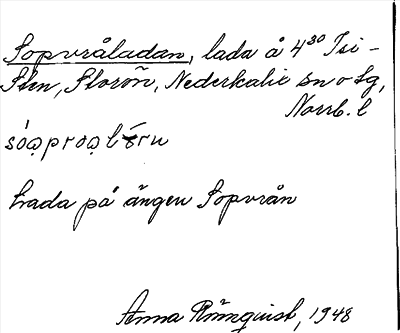 Sopvråladan, lada å 4³⁰ Tsi-
Flen, Storön, Nederkalix sn o Lg,
Norrb. l
Lada på ängen Sopvrån
Anna Rönnquist, 1948